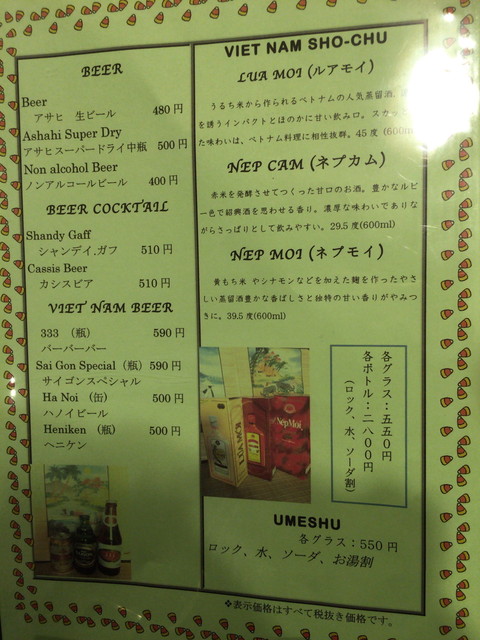 BEER
Beer
アサヒ 生ビール 480円
Ashahi Super Dry
アサヒスーパードライ中瓶 500円
Non alcohol Beer
ノンアルコールビール 400円
BEER COCKTAIL
Shandy Gaff
シャンデイ,ガフ 510円
Cassis Beer
カシスビア 510円
VIET NAM BEER
333 (瓶) 590円
バーバーバー
Sai Gon Special (瓶) 590円
サイゴンスペシャル
Ha Noi (缶) 500円
ハノイビール
Heniken (瓶) 500円
ヘニケン
VIET NAM SHO-CHU
LUA MOI (ルアモイ)
うるち米から作られるベトナムの人気蒸留酒。
を誘うインパクトとほのかに甘い飲み口。スカッ
た味わいは、ベトナム料理に相性抜群。45度 (600m
NEP CAM (ネプカム)
赤米を発酵させてつくった甘口のお酒。豊かなルビ
ー色で紹興酒を思わせる香り。濃厚な味わいでありな
がらさっぱりとして飲みやすい。29.5度(600ml)
NEP MOI (ネプモイ)
黄もち米 やシナモンなどを加えた麹を作ったやさ
しい蒸留酒豊かな香ばしさと独特の甘い香りがやみつ
きに。39.5度(600ml)
NepMoi
各グラス:五五〇円
各ボトル:二八〇〇円
(ロック、水、ソーダ割)
UMESHU
各グラス:550円
ロック、水、ソーダ、お湯割
※表示価格はすべて税抜き価格です。